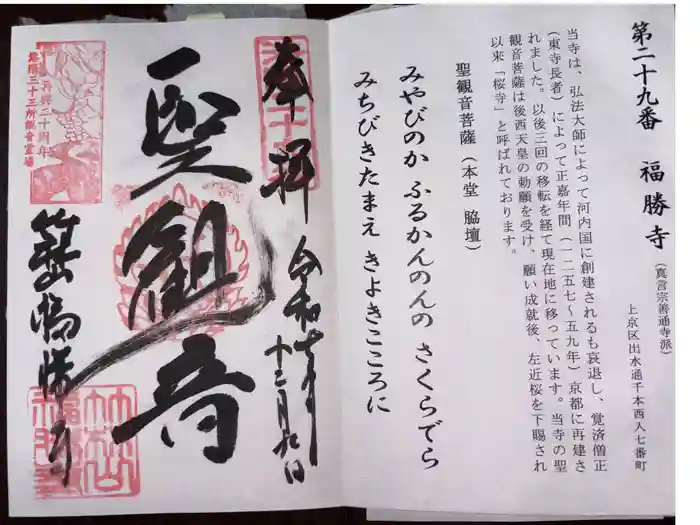 第二十九番 福勝寺
(真言宗善通寺派)
上京区出水通千本西入七番町
当寺は、弘法大師によって河内国に創建されるも衰退し、覚済僧正
(東寺長者)によって正嘉年間(一二五七~五九年)京都に再建さ
れました。以後三回の移転を経て現在地に移っています。当寺の聖
観音菩薩は後西天皇の勅願を受け、願い成就後、左近桜を下賜され
以来「桜寺」と呼ばれております。
聖観音菩薩(本堂 脇壇)
みやびのか ふるかんのんの さくらでら
みちびきたまえ きよきこころに
奉拝
令和七年
十二月九日
聖観音
再興二十周年
洛陽三十三所観音霊場
福勝寺